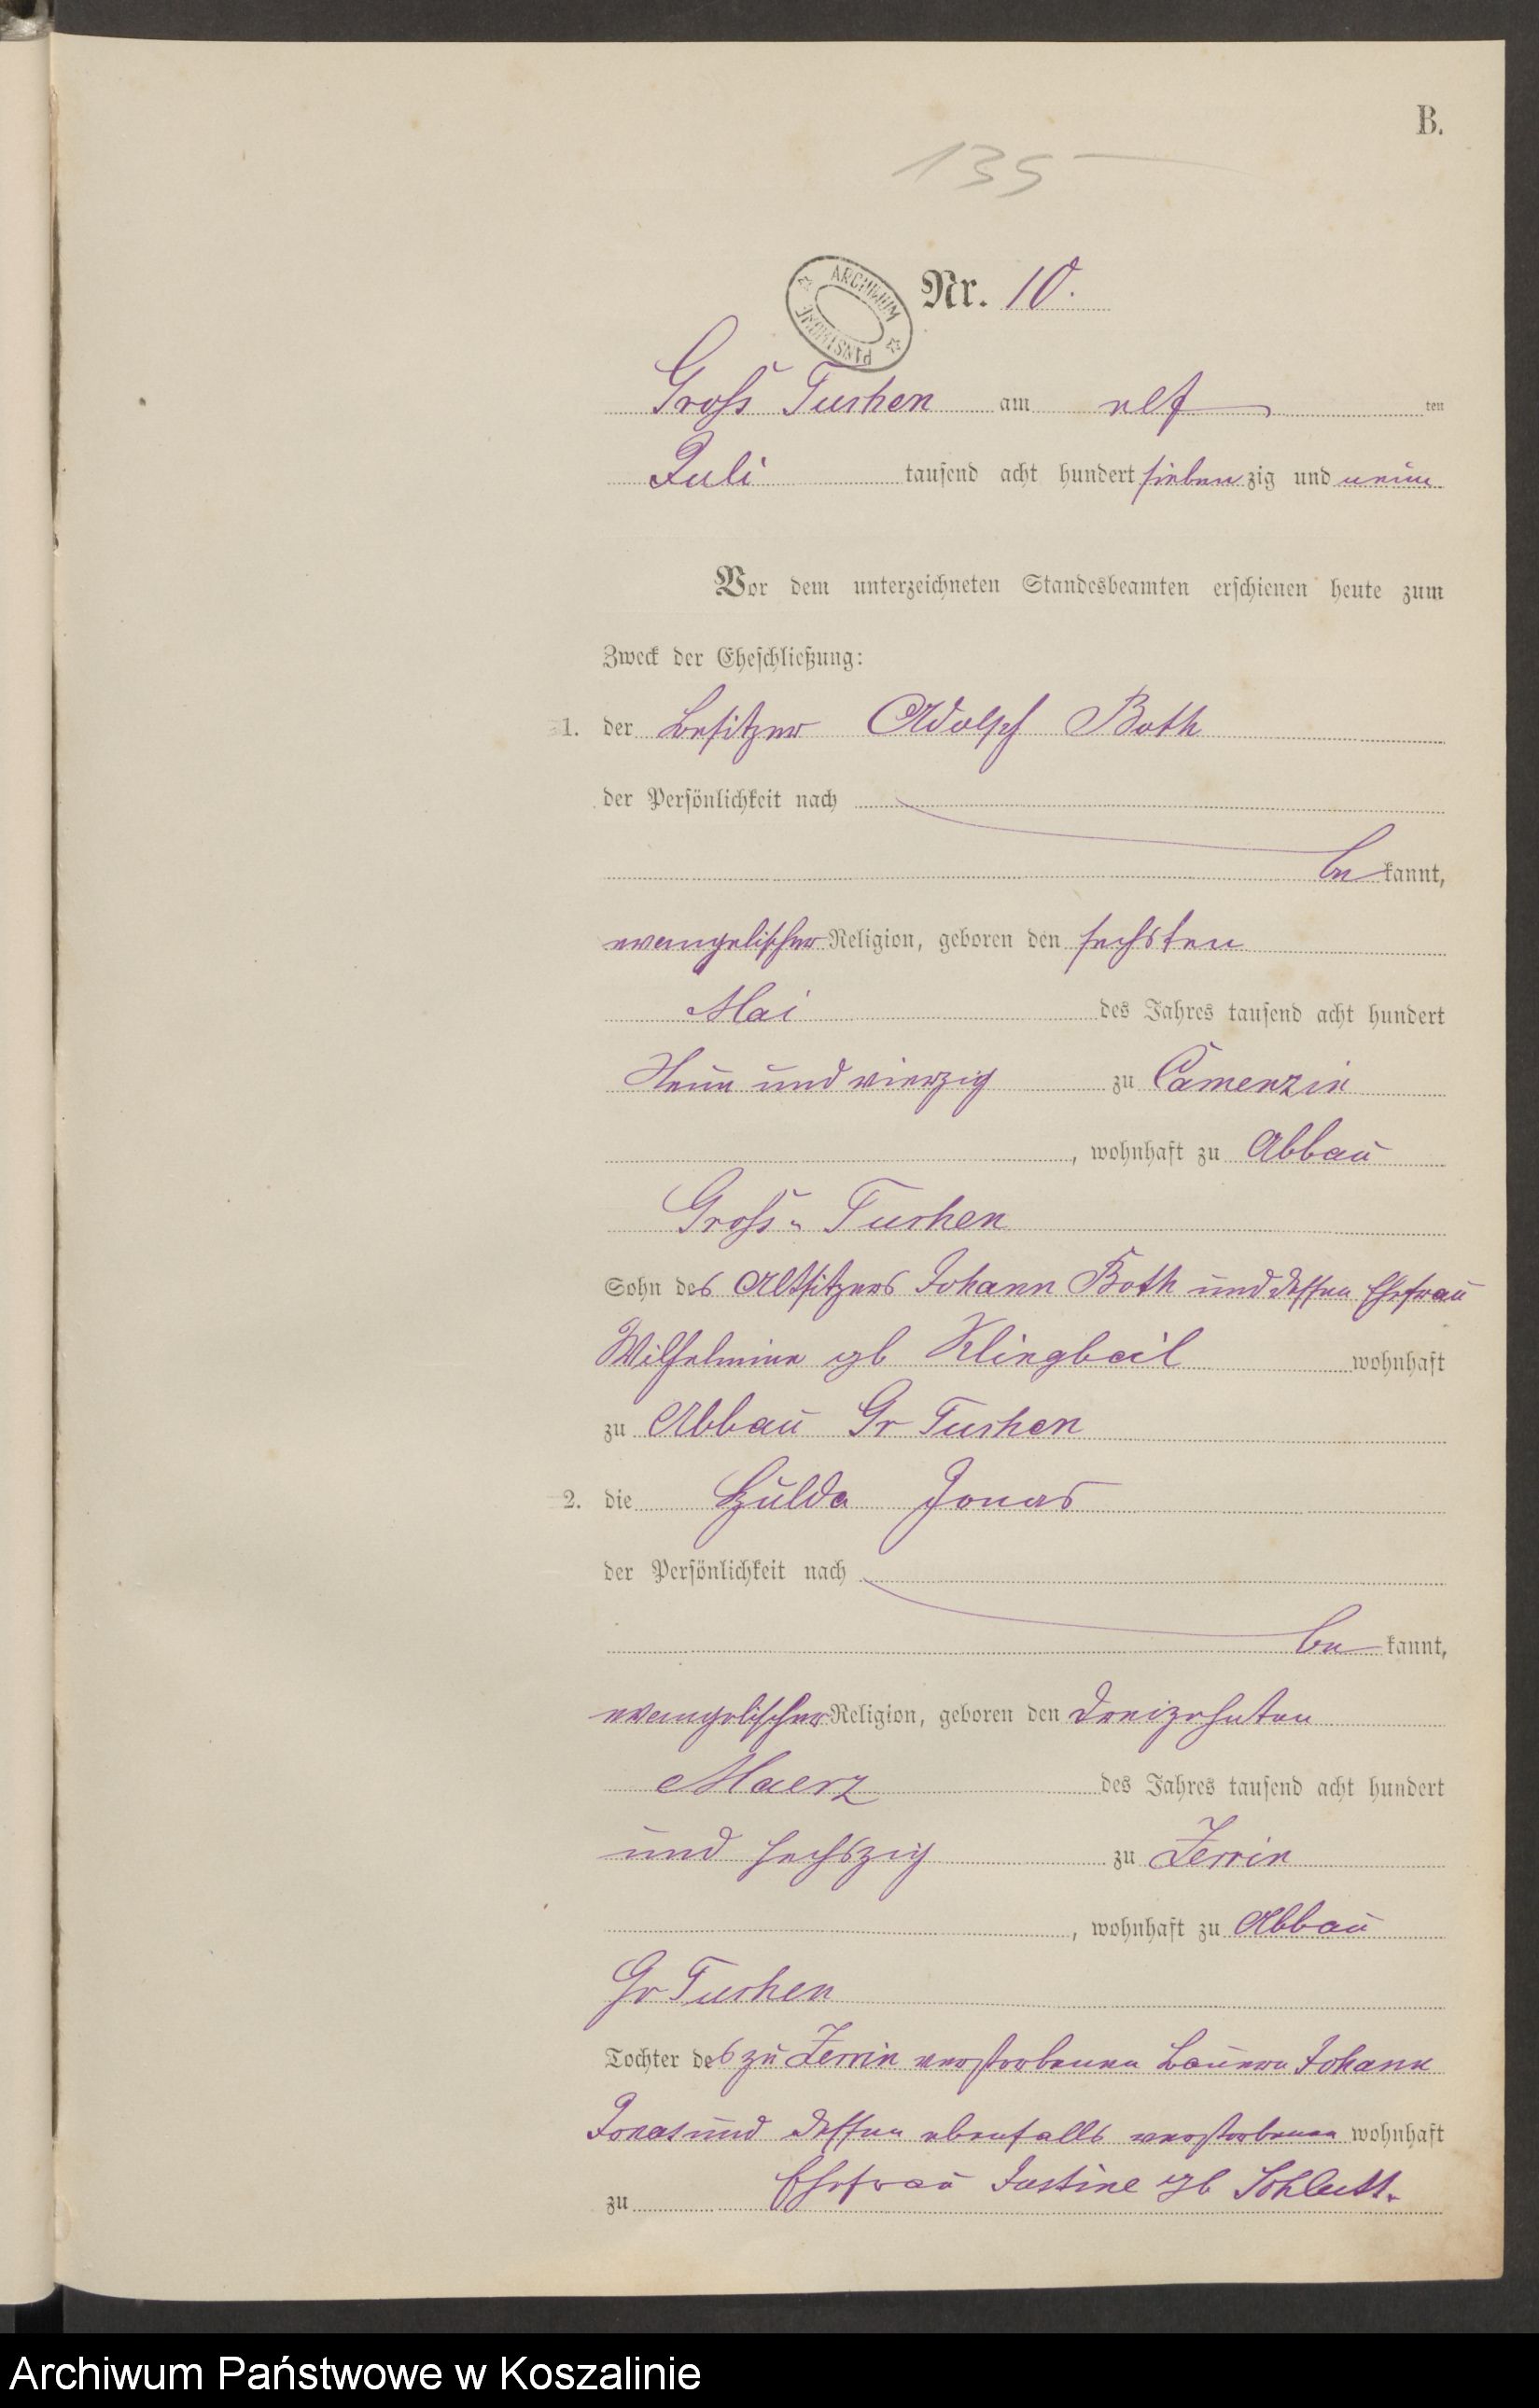 B.
135
ARCHIWUM PAŃSTWOWE
Nr. 10.
Groß Tuchen am elf ten
Juli tausend acht hundert siebenzig und neun
Vor dem unterzeichneten Standesbeamten erschienen heute zum
Zweck der Eheschließung:
1. der Besitzer Adolph Both
der Persönlichkeit nach
be kannt,
evangelischer Religion, geboren den sechsten
Mai des Jahres tausend acht hundert
Neun und vierzig zu Camenzin
, wohnhaft zu Abbau
Groß- Tuchen
Sohn des Altsitzers Johann Both und dessen Ehefrau
Wilhelmine gb Klingbeil wohnhaft
zu Abbau Gr Tuchen
2. die Hulda Jonas
der Persönlichkeit nach
be kannt,
evangelischer Religion, geboren den dreizehnten
Maerz des Jahres tausend acht hundert
und sechszig zu Zerrin
, wohnhaft zu Abbau
Gr Tuchen
Tochter des zu Zerrin verstorbenen Bauern Johann
Jonas und dessen ebenfalls verstorbenen wohnhaft
zu Ehefrau Justine gb
Archiwum Państwowe w Koszalinie